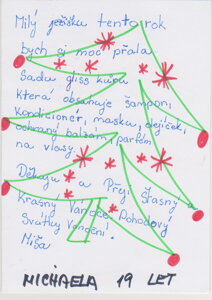 Milý ježíšku tento rok
bych si moc přála
Sadu gliss kúru
která obsahuje šampon,
kondicionér, masku, olejíček,
ochraný balzám, parfém
na vlasy.
Děkuju a Přeji štasný a
Krásný Vánoce Pohodový
Svátky Vánoční.
Míša
MICHAELA 19 LET